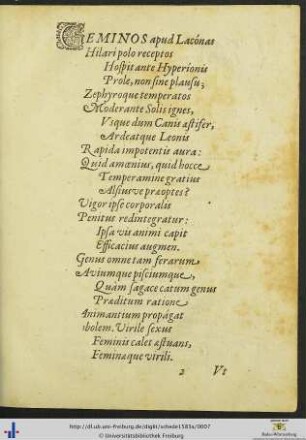 GEMINOS apud Lacónas
Hilari polo receptos
Hospitante Hyperionis
Prole, non sine plausu;
Zephyroque temperatos
Moderante Solis ignes,
Vsque dum Canis æstifer,
Ardeatque Leonis
Rapida impotentis aura:
Quid amœnius, quid hocce
Temperamine gratius
Alsiusve præoptes?
Vigor ipse corporalis
Penitus redintegratur:
Ipsa vis animi capit
Efficacius augmen.
Genus omne tam ferarum
Aviumque pisciumque,
Quàm sagace catum genus
Præditum ratione
Animantium propágat
bolem. Virile sexus
Feminis calet æstuans,
Feminæque virili.
2 Vt
http://dl.ub.uni-freiburg.de/diglit/schede1583s/0007
© Universitätsbibliothek Freiburg